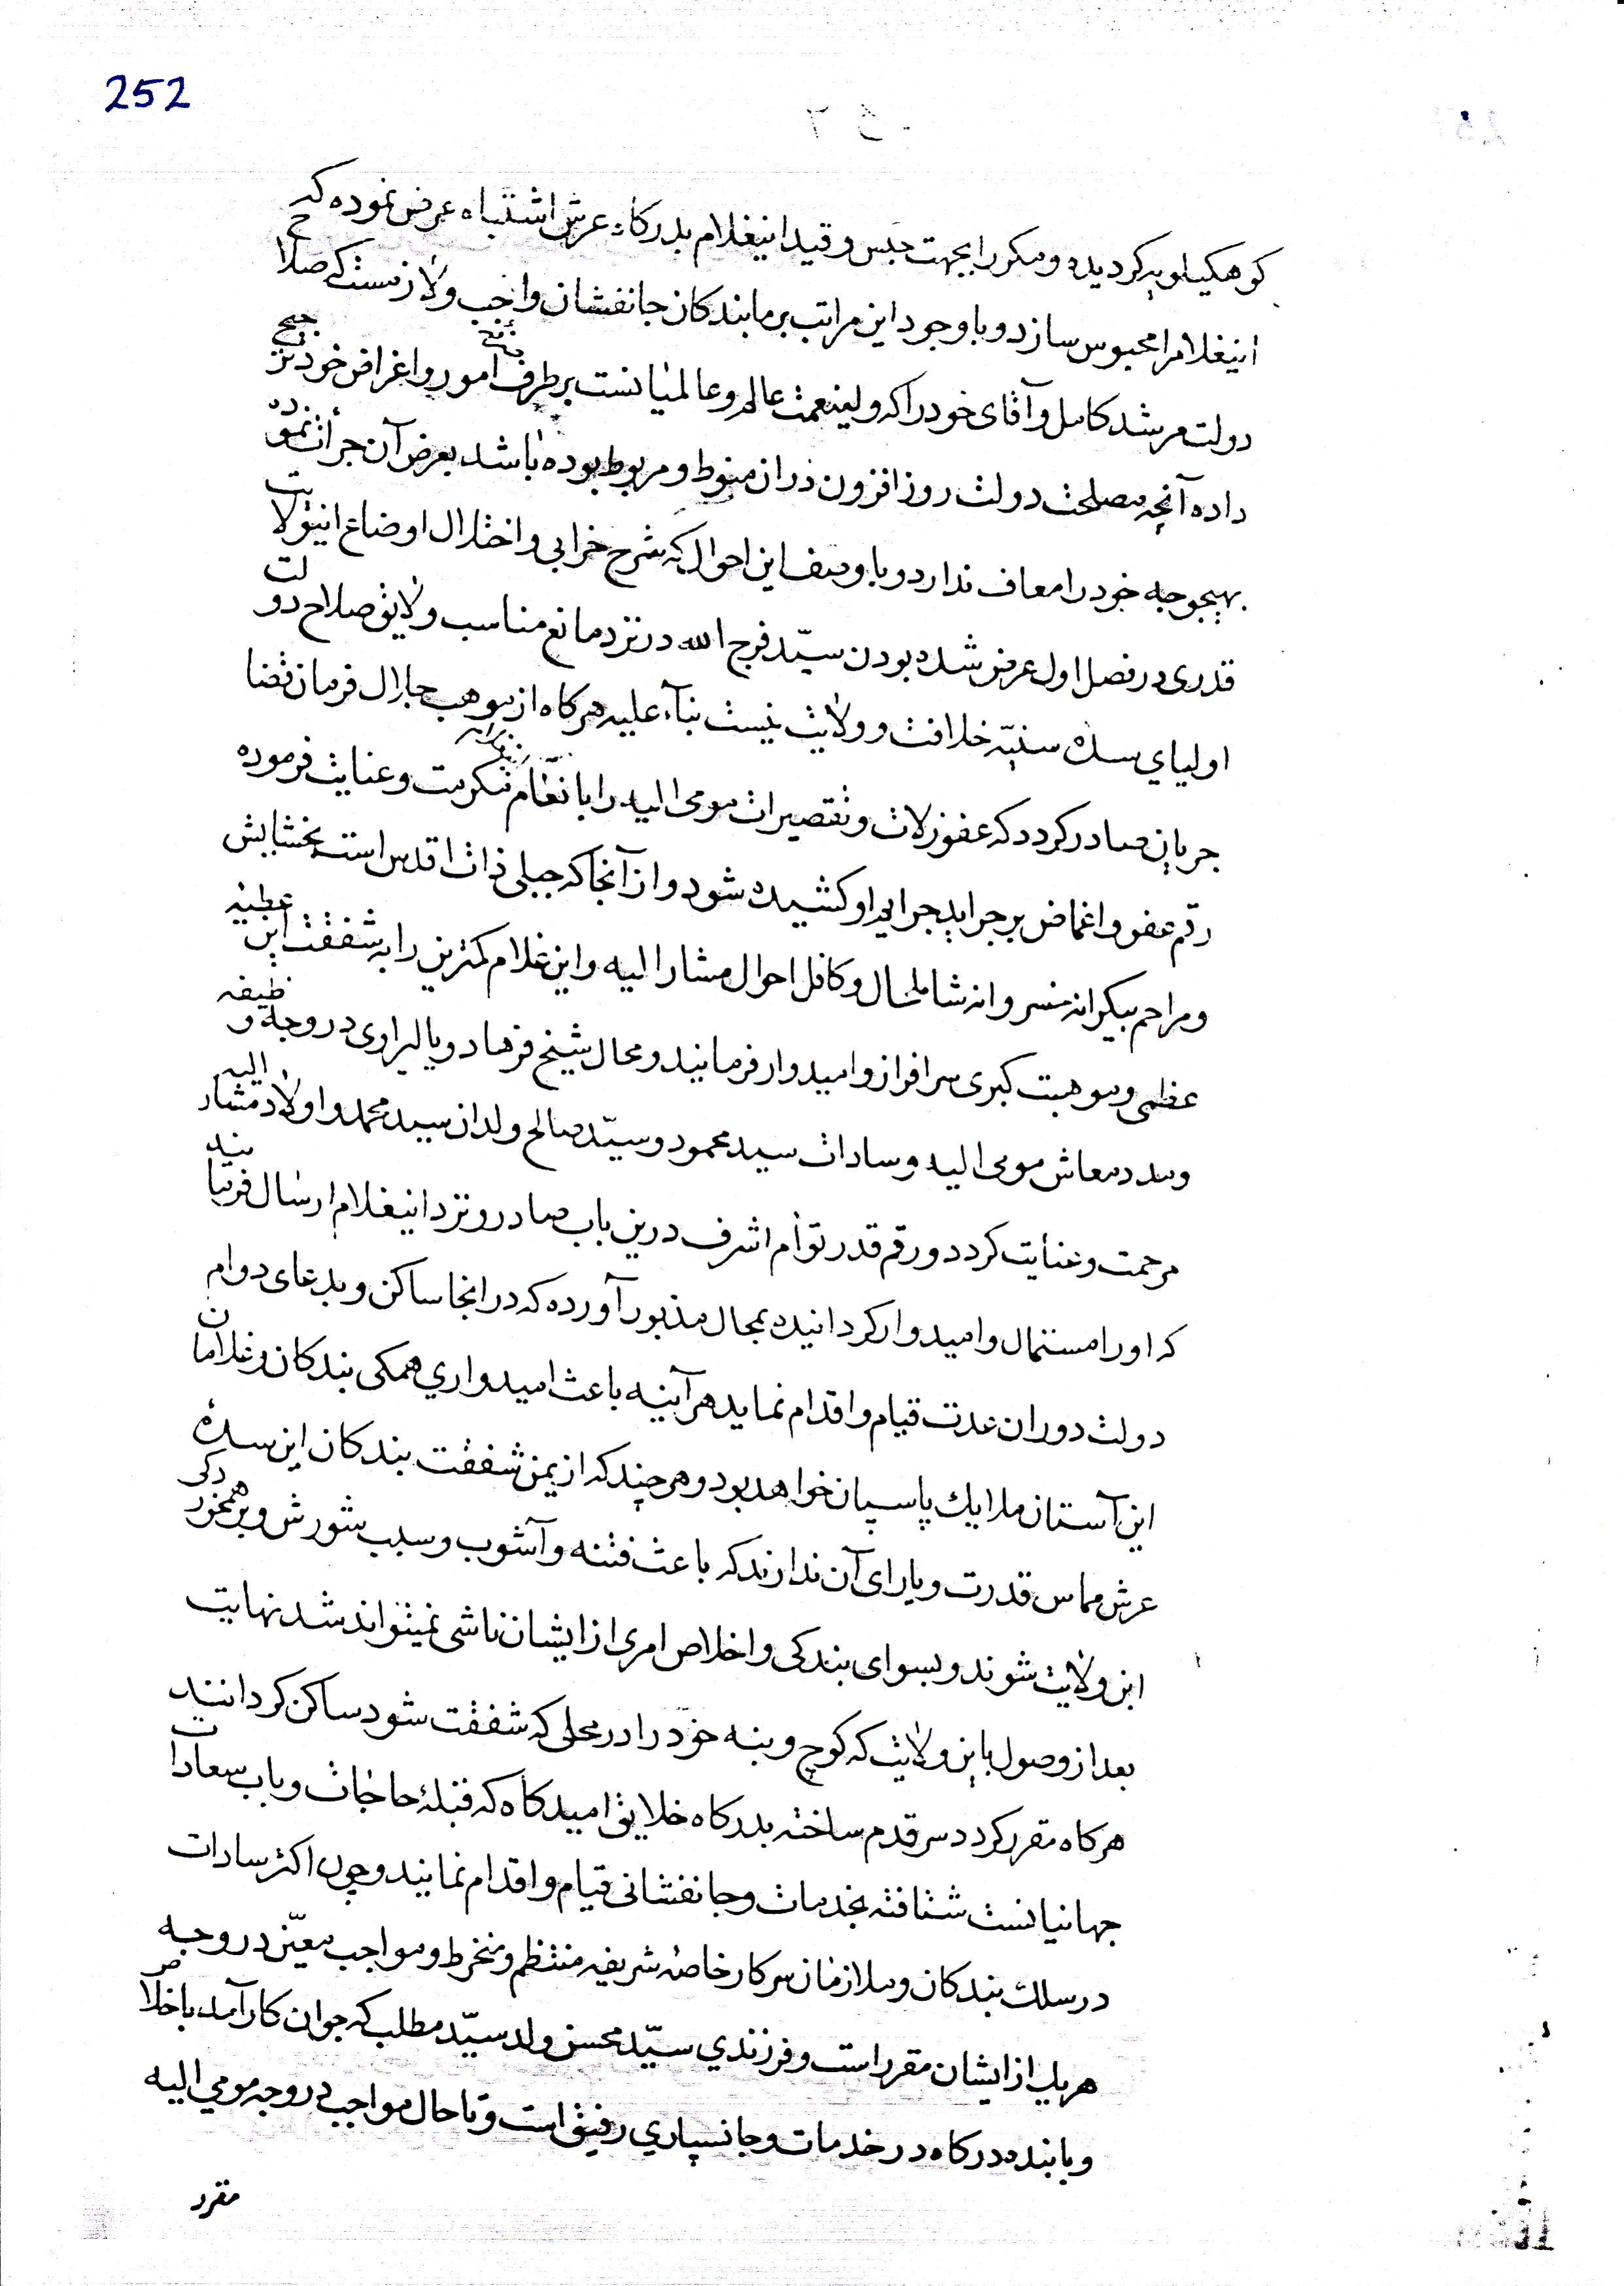 252
کوهکیلویه کردیده و مکرر بجهت حبس و قید اینغلام بدرکاه عرش اشتباه عرض نموده که
اینغلامرا محبوس سازد و با وجود این مراتب بر ما بندکان جانفشان واجب و لازمست که صلاح
دولت مرشد کامل و آقای خود را که ولینعمت عالم و عالمیانست بر طرف امور و اغراض خود ترجیح
داده آنچه مصلحت دولت روز افزون در آن منوط و مربوط بوده باشد بعرض آن جرأت نموده
بهیچوجه خود را معاف ندارد و با وصف این احوال که شرح خرابی و اختلال اوضاع اینولایت
قدری در فصل اول عرض شده بودن سیّد فرج الله در نزد مانع مناسب و لایق صلاح دولت
اولیای سده سنیّه خلافت و ولایت نیست بنآء علیه هرکاه از موهب جلال فرمان قضا
جریان صادر کردد که عفو زلات و تقصیرات مومی الیه را بانعام مکرمت و عنایت فرموده
رقم عفو و اغماض بر جراید جرایم او کشیده شود و از آنجا که جبلی ذات اقدس است بخشایش
و مراحم بیکرانه خسروانه شامل حال و کافل احوال مشار الیه و این غلام کمترین را به شفقت این عطیه
عظمی و موهبت کبری سرافراز و امیدوار فرمایند و محال شیخ فرهاد و یالبراوی در وجه وظیفه
و مدد معاش مومی الیه و سادات سید محمود و سیّد صالح ولدان سید محمد و اولاد مشار الیه
مرحمت و عنایت کردد و رقم قدر توأم اشرف درین باب صادر و نزد اینغلام ارسال فرمایند
که او را مستمال و امیدوار کردانیده بمحال مذبور آورده که در انجا ساکن و بدعای دوام
دولت دوران عدت قیام و اقدام نماید هر آینه باعث امیدواری همکی بندکان و غلامان
این آستان ملایک پاسپان خواهد بود و هر چند که از یمن شفقت بندکان این سدۀ
عرش مماس قدرت و یارای آن ندارند که باعث فتنه و آشوب و سبب شورش و برهمخوردکی
این ولایت شوند و بسوای بندکی و اخلاص امری از ایشان ناشی نمیتواند شد نهایت
بعد از وصول باین ولایت که کوچ و بنه خود را در محلی که شفقت شود ساکن کردانند
هرکاه مقرر کردد سر قدم ساخته بدرکاه خلایق امیدکاه که قبلۀ حاجات و باب سعادات
جهانیانست شتافته بخدمات و جانفشانی قیام و اقدام نمایند و چون اکثر سادات
در سلک بندکان و ملازمان سرکار خاصۀ شریفه منتظم و منخرط و مواجب معیّن در وجه
هریک از ایشان مقرر است و فرزندی سیّد محسن ولد سیّد مطلب که جوان کار آمد با اخلاص
و با بنده درکاه در خدمات و جانسپاری رفیق است و تا حال مواجب در وجه مومی الیه
مقرر